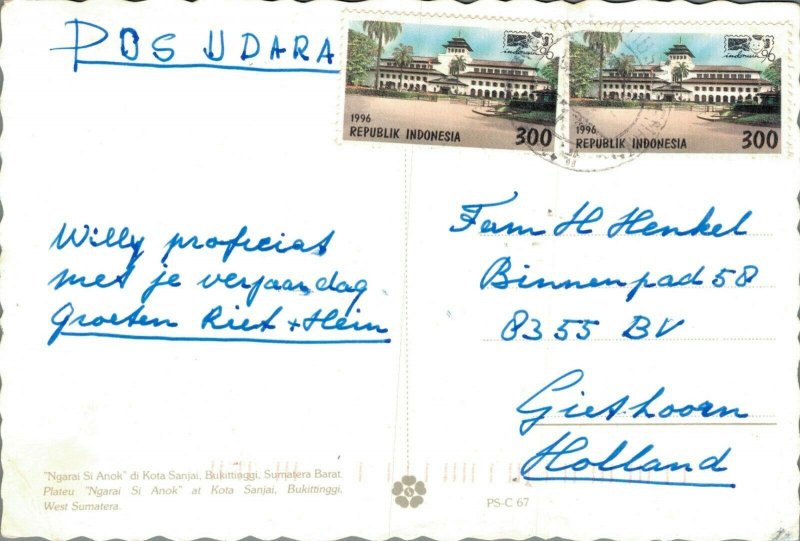 POS UDARA
indonesia 96
1996
REPUBLIK INDONESIA 300
indonesia 96
1996
REPUBLIK INDONESIA 300
Willy proficiat
met je verjaardag
Groeten Riet + Hein
Fam H Henkel
Binnenpad 58
8355 BV
Giethoorn
Holland
"Ngarai Si Anok" di Kota Sanjai, Bukittinggi, Sumatera Barat.
Plateu "Ngarai Si Anok" at Kota Sanjai, Bukittinggi,
West Sumatera.
PS-C 67